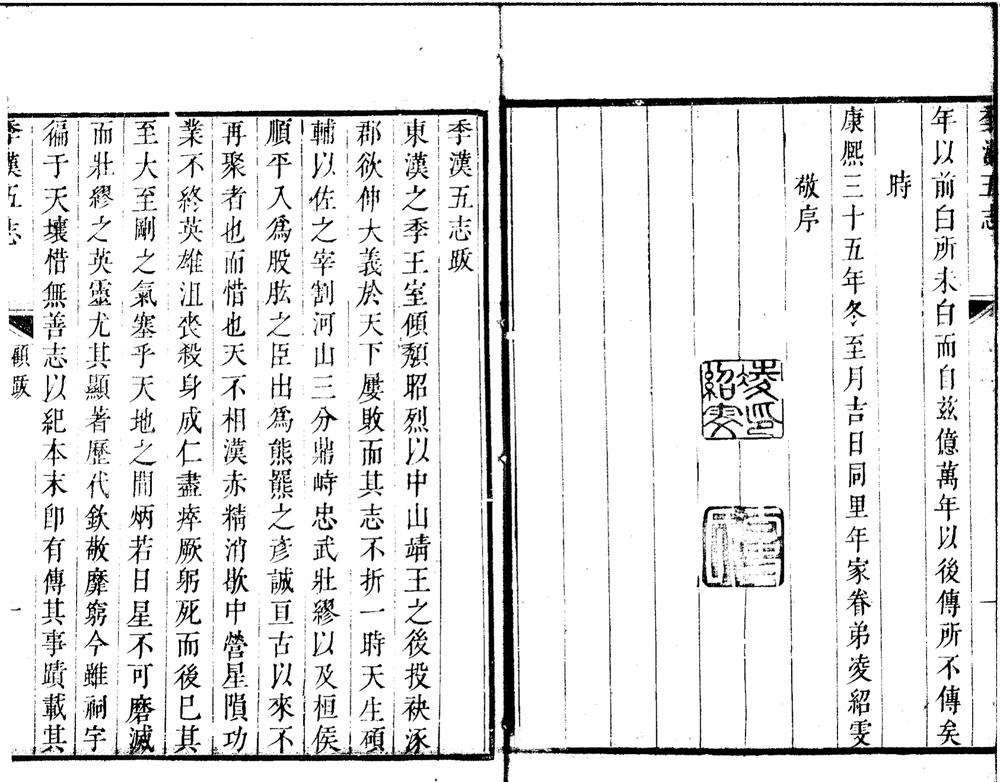 季漢五志
年以前白所未白而自玆億萬年以後傳所不傳矣
時
康熙三十五年冬至月吉日同里年家眷弟凌紹雯
敬序
凌紹雯印
季漢五志跋
東漢之季王室傾頹昭烈以中山靖王之後投袂涿
郡欲伸大義於天下屢敗而其志不折一時天生碩
輔以佐之宰割河山三分鼎峙忠武壯繆以及桓侯
順平入爲股肱之臣出爲熊羆之彥誠亘古以來不
再聚者也而惜也天不相漢赤精消歇中營星隕功
業不終英雄沮喪殺身成仁盡瘁厥躬死而後已其
至大至剛之氣塞乎天地之間炳若日星不可磨滅
而壯繆之英靈尤其顯著歷代欽敬靡窮今雖祠宇
徧于天壤惜無善志以紀本末卽有傳其事蹟載其
季漢五志
顧跋
一